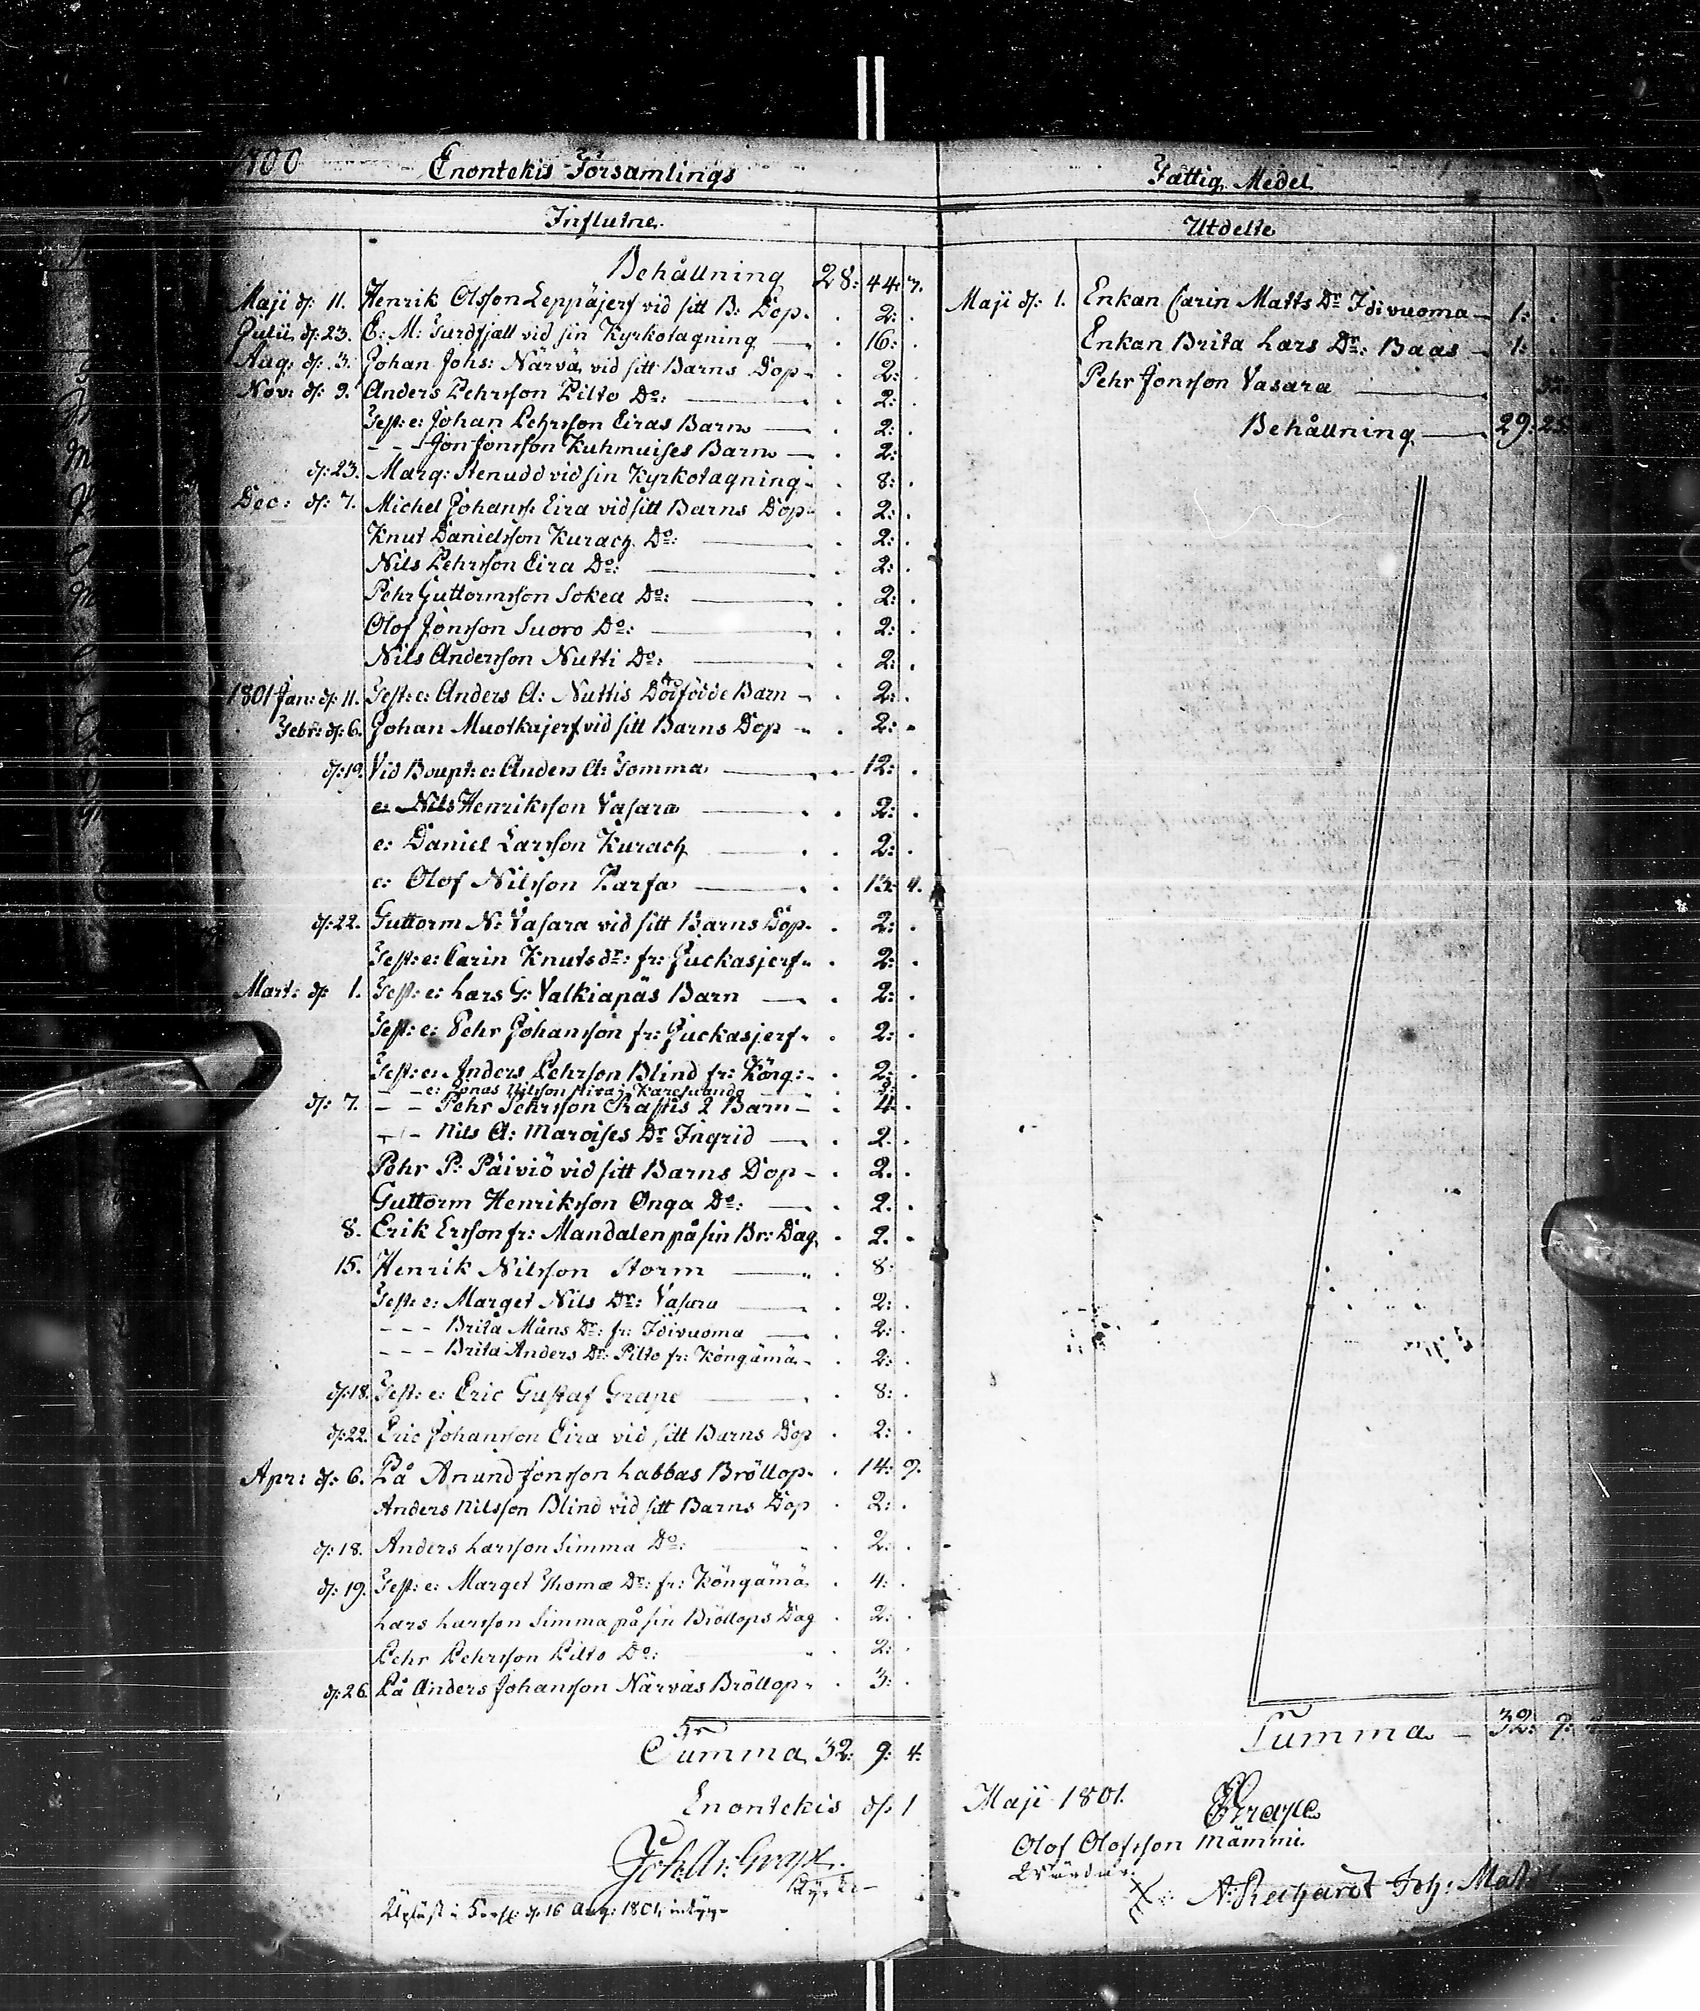 1800 Enontekis Församlings
Influtne.
Behållning 28: 44: 7.
Maji d: 11. Henrik Olsson Leppäjerf vid sitt B: Dop. . 2: .
Julii d: 23. E: M: Turdfjäll vid sin Kyrkotagning — . 16: .
Aug: d: 3. Johan Johs: Närvä vid sitt Barns Dop - . 2: .
Nov: d: 9. Anders Pehrsson Pilto Do: — . 2: .
Test: e: Johan Pehrsson Eiras Barn — . 2: .
- - Jon Jonsson Kuhmuises Barn — . 2:
d: 23. Marg: Stenudd vid sin Kyrkotagning . 8: .
Dec: d: 7. Michel Johanss: Eira vid sitt Barns Dop . 2: .
Knut Danielsson Kurach Do: — . 2: .
Nils Pehrsson Eira Do: — . 2: .
Pehr Guttormsson Sokea Do: — . 2: .
Olof Jonsson Suoro Do: — . 2: .
Nils Andersson Nutti Do: — . 2: .
1801 Jan: d: 11. Test: e: Anders A: Nuttis Dödfödde Barn - . 2: .
Febr: d: 6. Johan Muotkajerf vid sitt Barns Dop - . 2: .
d: 19. Vid Boupt: e: Anders A: Tomma — . 12: .
e: Nils Henriksson Vasara — . 2: .
e: Daniel Larsson Kurach — . 2: .
e: Olof Nilsson Parfa — . 13: 4.
d: 22. Guttorm N: Vasara vid sitt Barns Dop. . 2: .
Test: e: Carin Knutsdr: fr: Juckasjerf . 2: .
Mart: d: 1. Test: e: Lars G: Valkiapäs Barn — . 2: .
Test: e: Pehr Johansson fr: Juckasjerf . 2: .
Test: e: Anders Pehrsson Blind fr: Köng: - . 2: .
- - e: Jonas Nilsson Karesvando
d: 7. - - Pehr Pehrsson Rastis 2 Barn - . 4: .
- - Nils A: Maroises Dr Ingrid — . 2. .
Pehr P: Päiviö vid sitt Barns Dop - . 2. .
Guttorm Henriksson Onga Do: — . 2. .
8. Erik Ersson fr: Mandalen på sin Br: Dag . 2. .
15. Henrik Nilsson Storm — . 8:
Test: e: Marget Nils Dr: Vasara — . 2: .
- - - Brita Måns Dr: fr: Idivuoma — . 2: .
- - - Brita Anders Dr: Pilto fr: Köngämä - . 2: .
d: 18. Test: e: Eric Gustaf Grape — . 8: .
d: 22. Eric Johansson Eira vid sitt Barns Dop . 2: .
Apr: d: 6. På Anund Jonsson Labbas Bröllop . 14: 9.
Anders Nilsson Blind vid sitt Barns Dop . 2: .
d: 18. Anders Larsson Simma Do: . 2: .
d: 19. Test: e: Marget Thomæ Dr: fr: Köngämä . 4: .
Lars Larsson Simma på sin Bröllops Dag . 2: .
Pehr Pehrsson Pilto Do: . 2: .
d: 26. På Anders Johansson Närväs Bröllop . 3: .
Summa 32: 9: 4.
Enontekis d: 1
Joh: Grape
Uplåst i d: 16 Aug: 1801,
Fattig Medel
Utdelte
Maji d: 1. Enkan Carin Matts Dr Idivuoma — 1: .
Enkan Brita Lars Dr: Baas — 1: .
Pehr Jonsson Vasara —
Behållning — 29:
Summa — 32: 9:
Maji 1801.
Grape
Olof Olofsson Mämmi